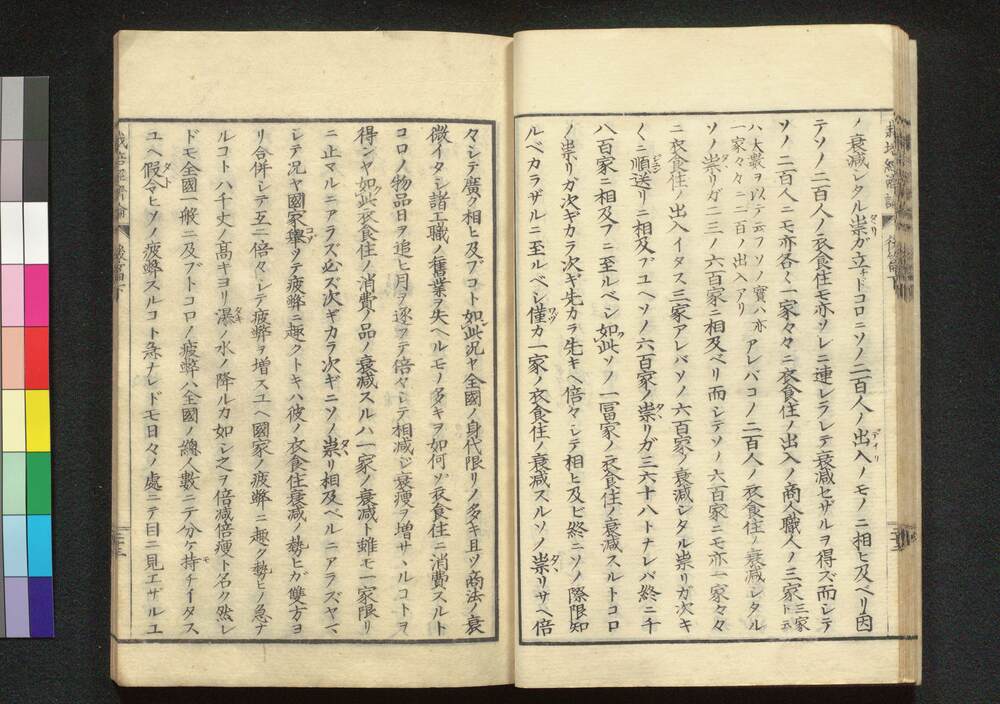 ノ衰減シタル祟ガ立ドコロニソノ二百人ノ出入ノモノニ相ヒ及ベリ因
テソノ二百人ノ衣食住モ亦ソレニ連レラレテ衰減セザルヲ得ズ而シテ
ソノ二百人ニモ亦各々一家々々ニ衣食住ノ出入ノ商人職人ノ三家三家ト云
ハ大數ヲ以テ云フソノ實ハ亦一家々々ニ二百ノ出入アリアレバコノ二百人ノ衣食住ノ衰減シタル
ソノ祟リガ二三ノ六百家ニ相及ベリ而シテソノ六百家ニモ亦一家々々
ニ衣食住ノ出入イタス三家アレバソノ六百家ノ衰減シタル祟リガ次キ
〱ニ順送リニ相及ブユヘソノ六百家ノ祟リガ三六十八トナレバ終ニ千
八百家ニ相及ブニ至ルベシ如此ソノ一冨家ノ衣食住ノ衰減スルトコロ
ノ祟リガ次ギカラ次ギ先カラ先キヘ倍々シテ相ヒ及ビ終ニソノ際限知
ルベカラザルニ至ルベシ僅カ一家ノ衣食住ノ衰減スルソノ祟リサヘ倍
々シテ廣ク相ヒ及ブコト如此況ヤ全國ノ身代限リノ多キ且ツ商法ノ衰
微イタシ諸工職ノ舊業ヲ失ヘルモノ多キヲ如何ソ衣食住ニ消費スルト
コロノ物品日ヲ追ヒ月ヲ逐フテ倍々シテ相減ジ衰瘦ヲ增サヽルコトヲ
得ンヤ如此衣食住ノ消費ノ品ノ衰減スルハ一家ノ衰減ト雖モ一家限リ
ニ止マルニアラズ必ズ次ギカラ次ギニソノ祟リ相及ベルニアラズヤ
シテ況ヤ國家擧ツテ疲弊ニ趣クトキハ彼ノ衣食住衰減ノ勢ヒガ雙方ヨ
リ合併シテ互ニ倍々シテ疲弊ヲ增スユヘ國家ノ疲弊ニ趣ク勢ヒノ急ナ
ルコトハ千丈ノ高キヨリ瀑ノ水ノ降ルカ如シ之ヲ倍減倍瘦ト名ク然レ
ドモ全國一般ニ及ブトコロノ疲弊ハ全國ノ總人數ニテ分ケ持チイタス
ユヘ假令ヒソノ疲弊スルコト急ナレドモ日々ノ處ニテ目ニ見エザルユ